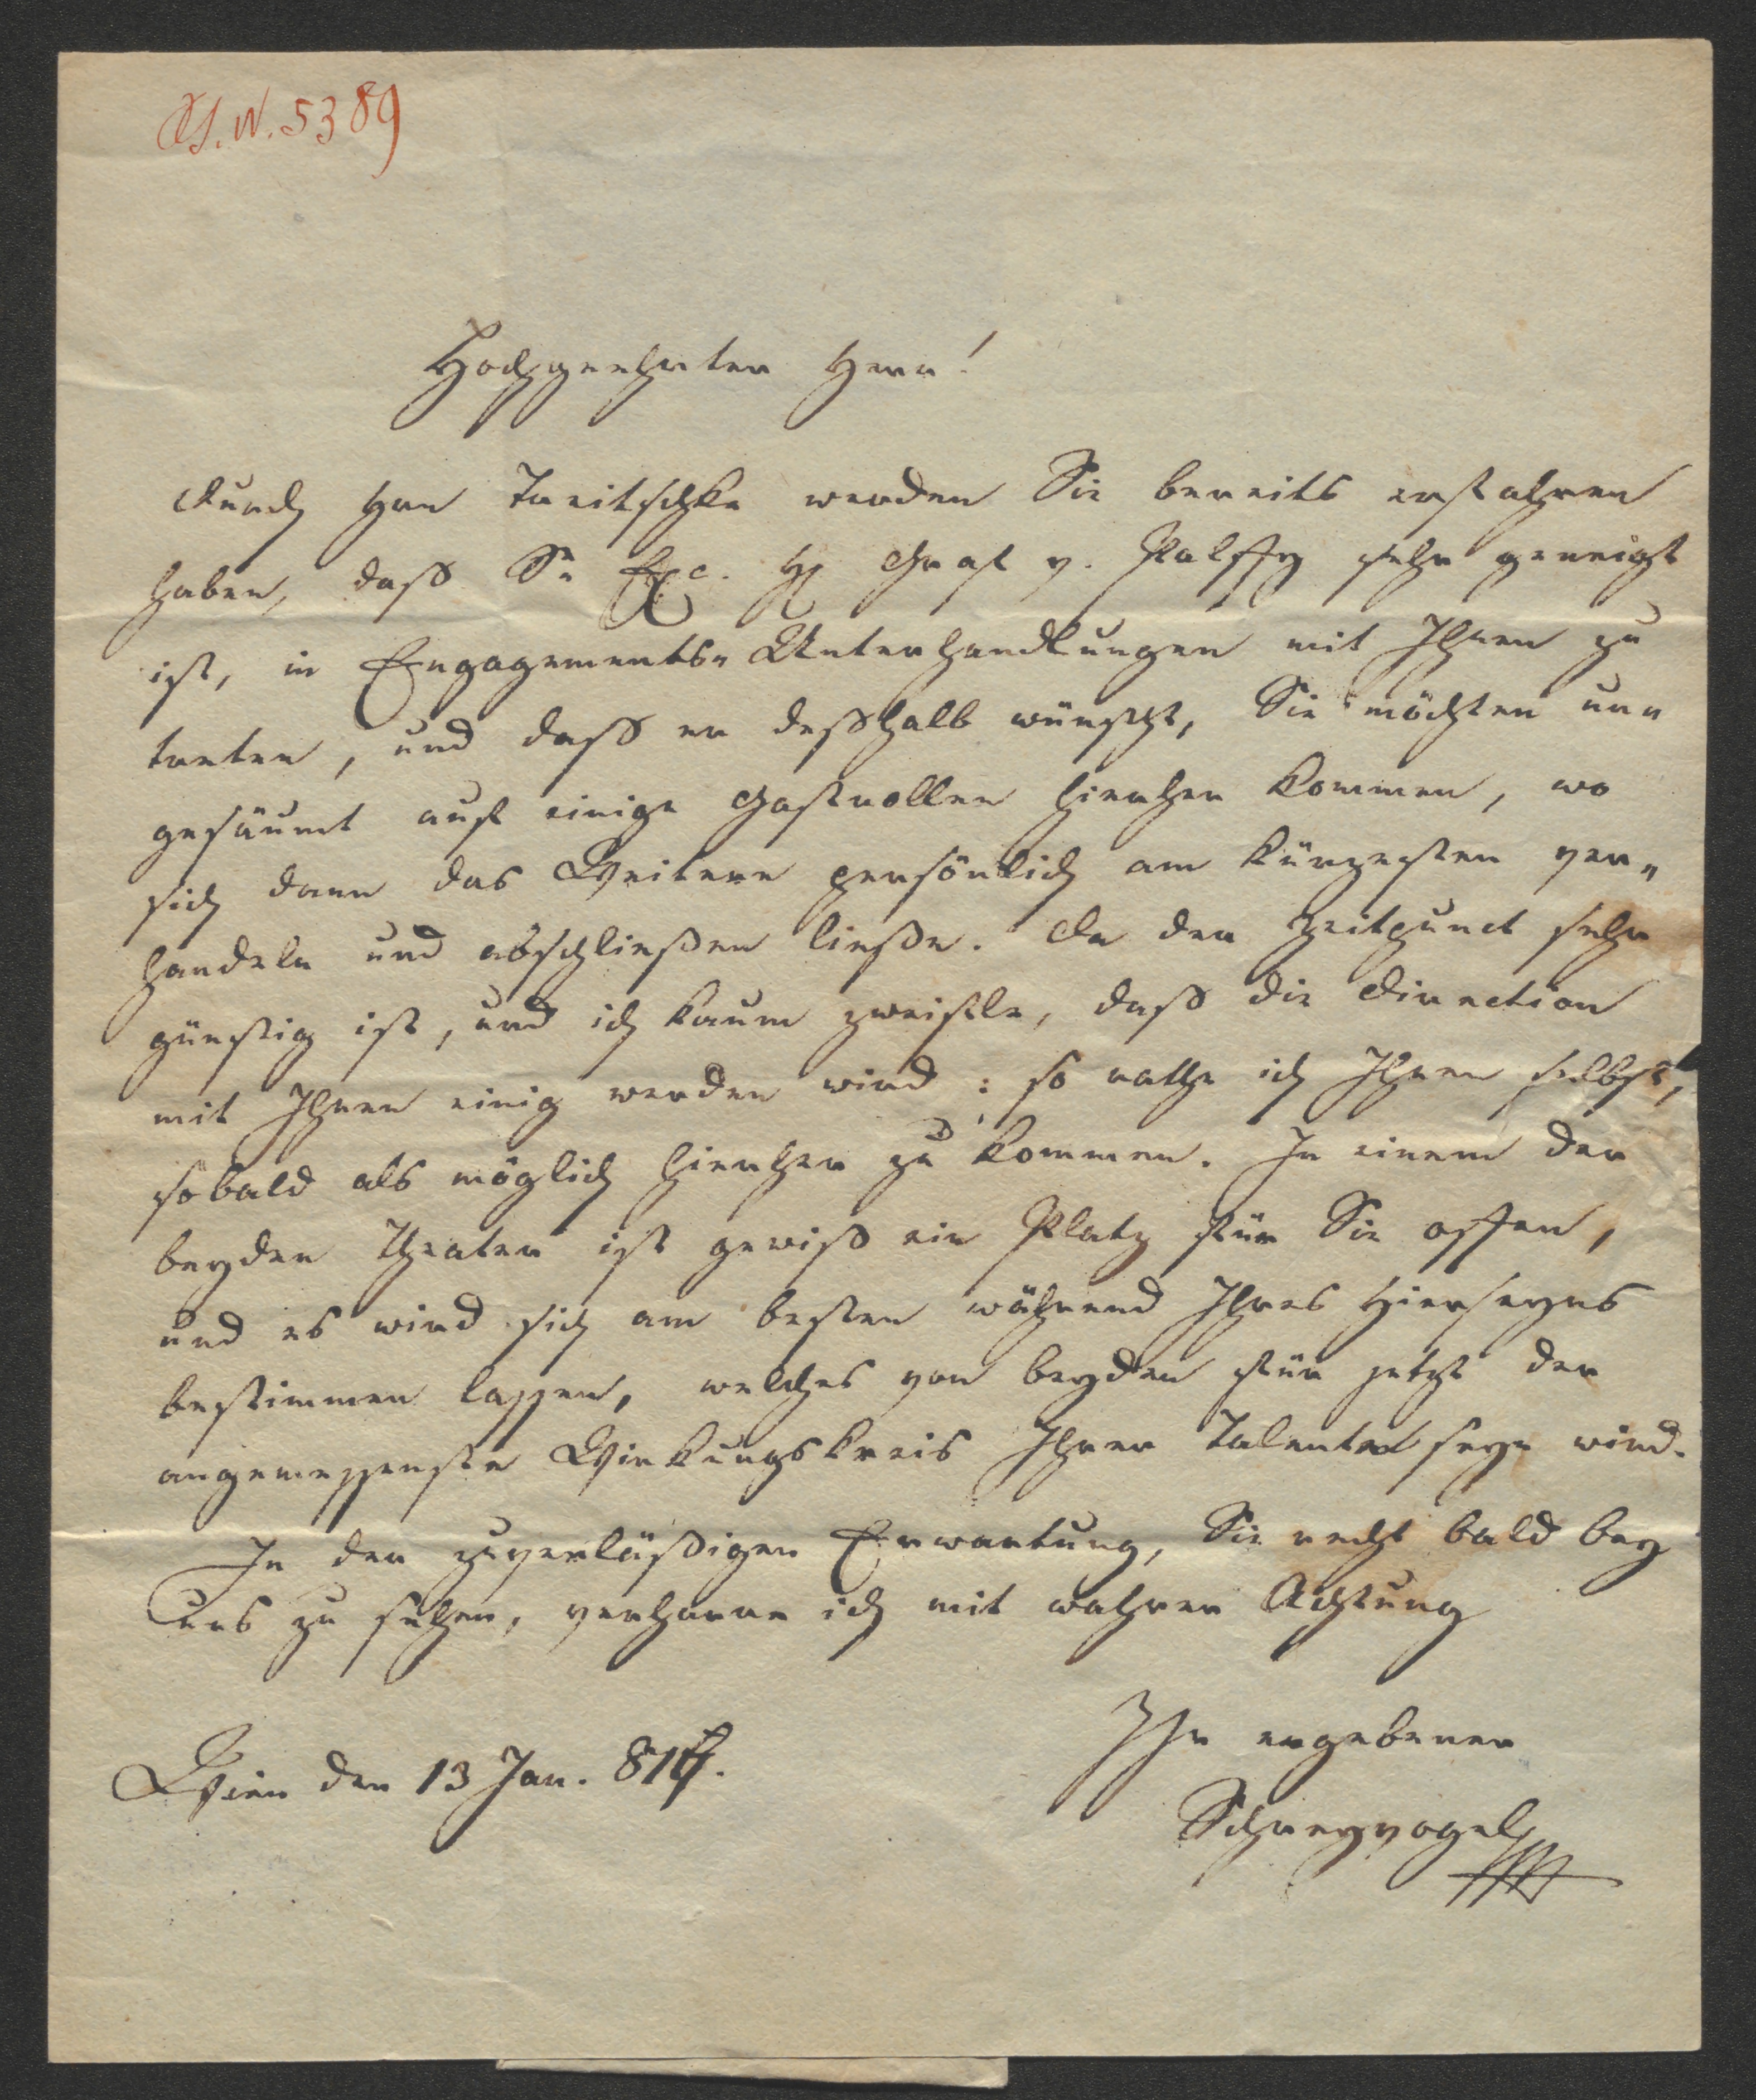 J. N. 5389
Hochgeehrter Herr!
Durch Hrn Treitschke werden Sie bereits erfahren
haben, daß Sr Exc. H Graf v. Palffy sehr geneigt
ist, in Engagements-Unterhandlungen mit Ihnen zu
treten, und daß er deßhalb wünscht, Sie möchten un-
gesäumt auf einige Gastrollen hierher kommen, wo
sich dann das Weitere persönlich am kürzesten ver-
handeln und abschließen ließe. Da der Zeitpunct sehr
günstig ist, und ich kaum zweifle, daß die Direction
mit Ihnen einig werden wird: so rathe ich Ihnen selbst,
sobald als möglich hierher zu kommen. In einem der
beyden Theater ist gewiß ein Platz für Sie offen,
und es wird sich am besten während Ihres Hierseyns
bestimmen lassen, welches von beyden für jetzt der
angemessenste Wirkungskreis Ihrer Talente seyn wird.
In der zuverläßigen Erwartung, Sie recht bald bey
uns zu sehen, verharre ich mit wahrer Achtung
Ihr ergebener
Wien den 13 Jan.
Schreyvogel